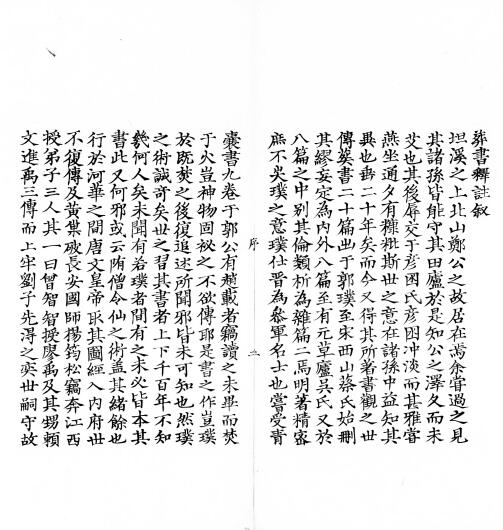 葬書釋註敘
坦溪之上北山鄭公之故居在焉余嘗過之見
其諸孫皆能守其田廬於是知公之澤久而未
艾也其後辱交于彥困氏彥困沖淡而甚雅嘗
燕坐通夕有糠粃斯世之意在諸孫中益知其
異也毎二十年矣而今又得其所著書觀之世
傳葬書二十篇出于郭璞至宋西山蔡氏始刪
其繆妄定為内外八篇至有元草廬吳氏又於
八篇之中別其倫類析為雜篇二焉明著精密
庶不失璞之意璞仕晉為參軍名士也嘗受青
序
囊書九卷于郭公有趙載者竊讀之未畢而焚
于火豈神物固祕之不欲傳耶是書之作豈璞
於既焚之後復追述所聞邪皆未可知也然璞
之術誠奇矣世之習其書者上下千百年不知
幾何人矣未聞有若璞者間有之未必皆本其
書此又何邪或云隋僧令仙之術蓋其緒餘也
行於河華之間唐文皇帝取其圖經入内府世
不復傳及黃巢破長安國師楊筠松竊奔江西
授弟子三人其一曰曾智智授廖禹及其甥賴
文進禹三傳而上牢劉子先得之奕世嗣守故